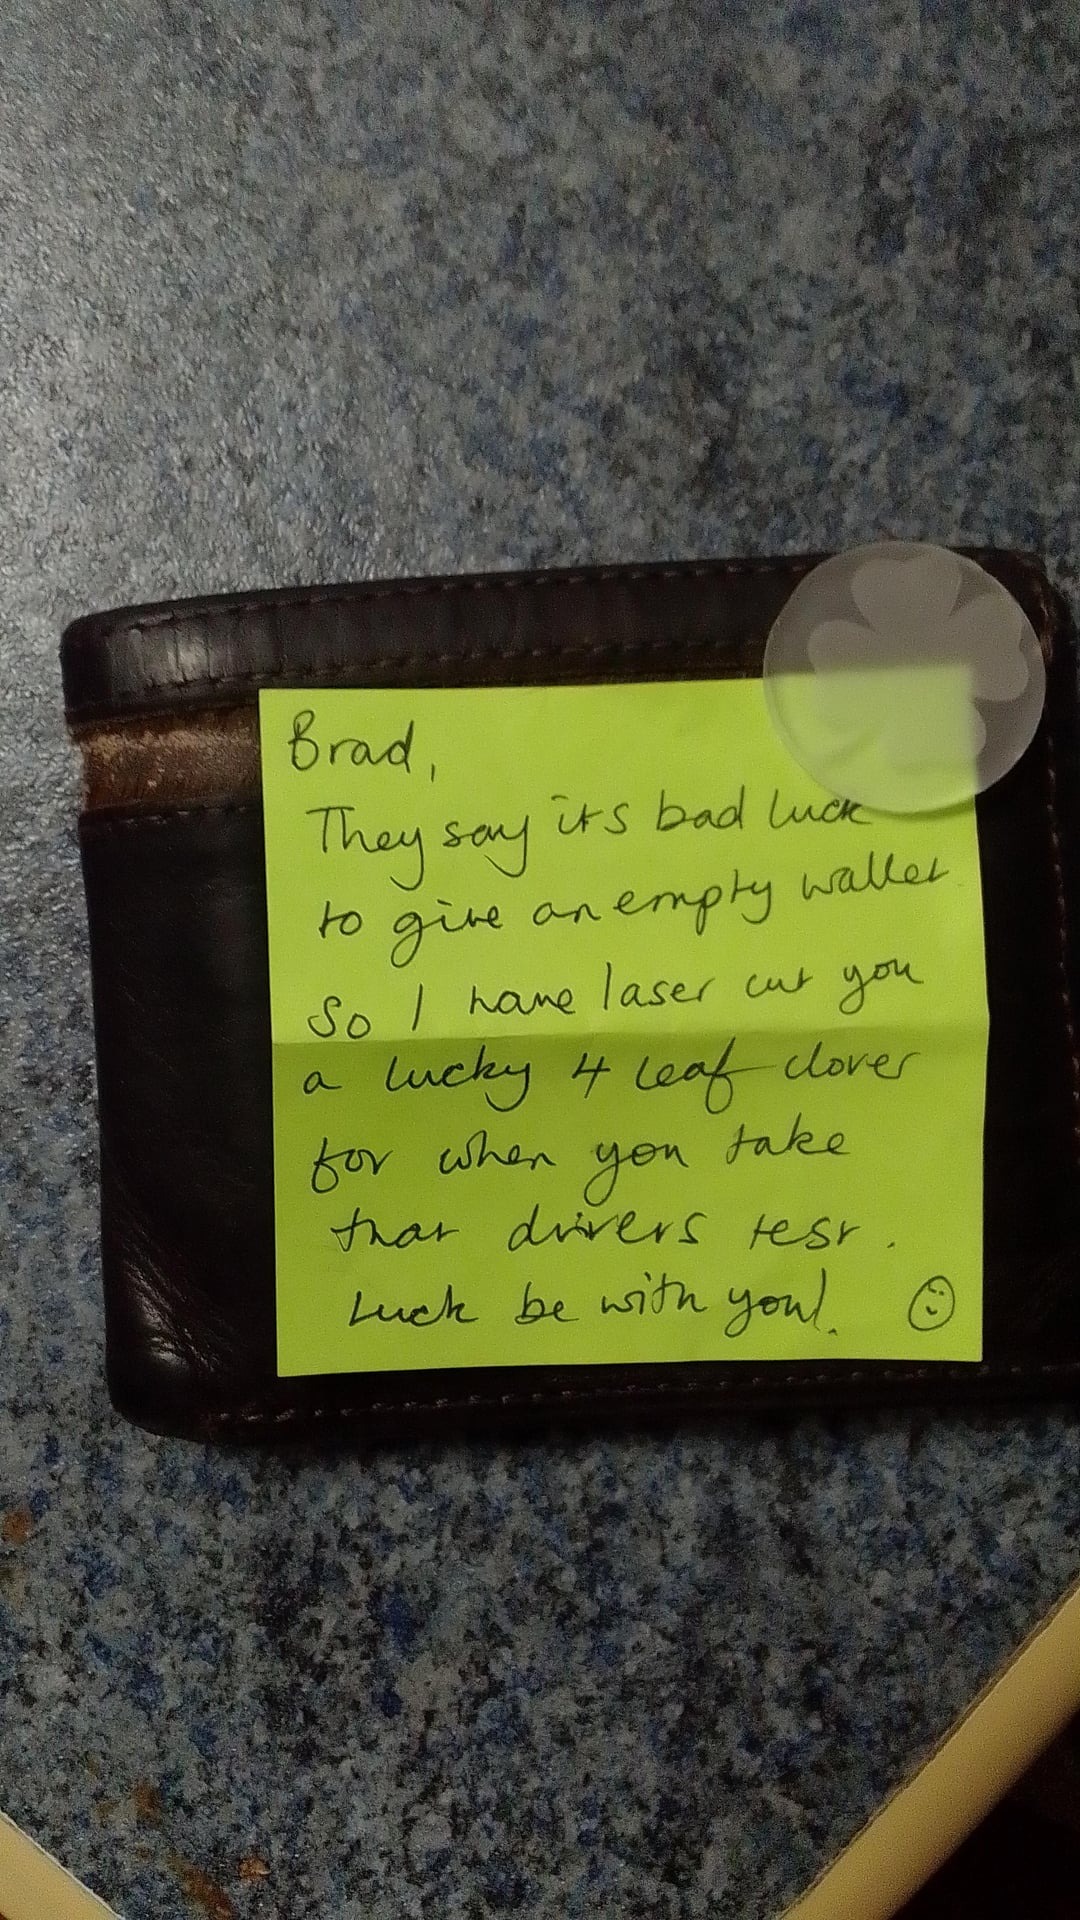 Brad,
They say its bad luck
to give an empty wallet
So I have laser cut you
a lucky 4 leaf clover
for when you take
that drivers test.
Luck be with you!